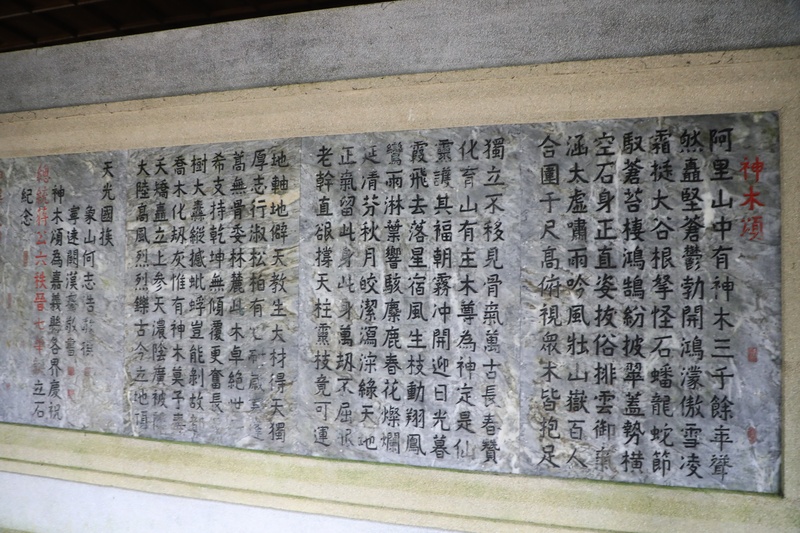 神木頌
阿里山中有神木三千餘年聳
然矗堅蒼鬱勃開鴻濛傲雪凌
霜挺大谷根拏怪石蟠龍蛇節
馭蒼苔棲鴻鵠紛披翠蓋勢橫
空石身正直姿拔俗排雲御氣
涵太虛嘯雨吟風壯山嶽百人
合圍千尺高俯視眾木皆抱足
獨立不移見骨氣萬古長春贊
化育山有主木尊為神定是仙
靈護其福朝霧冲開迎日光暮
霞飛去落星宿風生枝動翔鳳
鸞雨淋葉響駭麋鹿春花燦爛
延清芬秋月皎潔瀉深綠天地
正氣留此身此身萬劫不屈服
老幹直欲撐天柱靈枝竟可運
地軸地僻天教生大材得天獨
厚志行淑松柏有心耐歲寒蓬
蒿無骨委林麓此木卓絕世
希支持乾坤無傾覆更奮長
樹大纛縱撼蚍蜉豈能剝故
喬木化劫灰惟有神木莫予毒
夭矯矗立上參天濃陰廣被
大陸高風烈烈鑠古今立地頂
天光國族
象山何志浩撰
寧遠關漢騫敬書
神木頌為嘉義縣各界慶祝
總統蔣公六秩晉七華誕立石
紀念